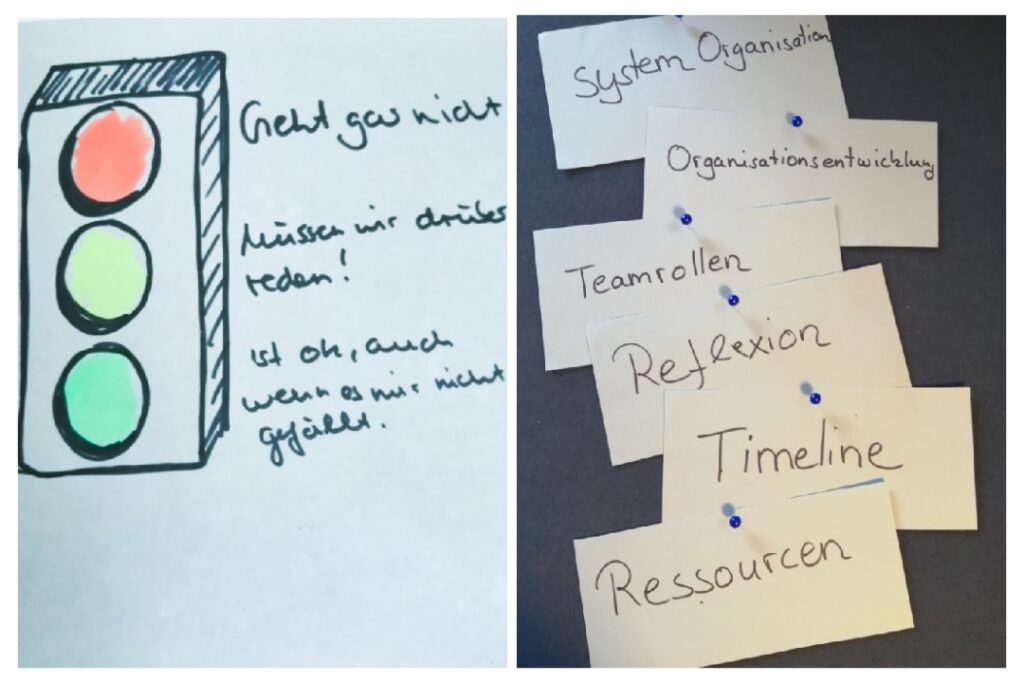 Geht gar nicht
Müssen wir drüber
reden!
ist ok, auch
wenn es mir nicht
gefällt.
System Organisation
Organisationsentwicklung
Teamrollen
Reflexion
Timeline
Ressourcen